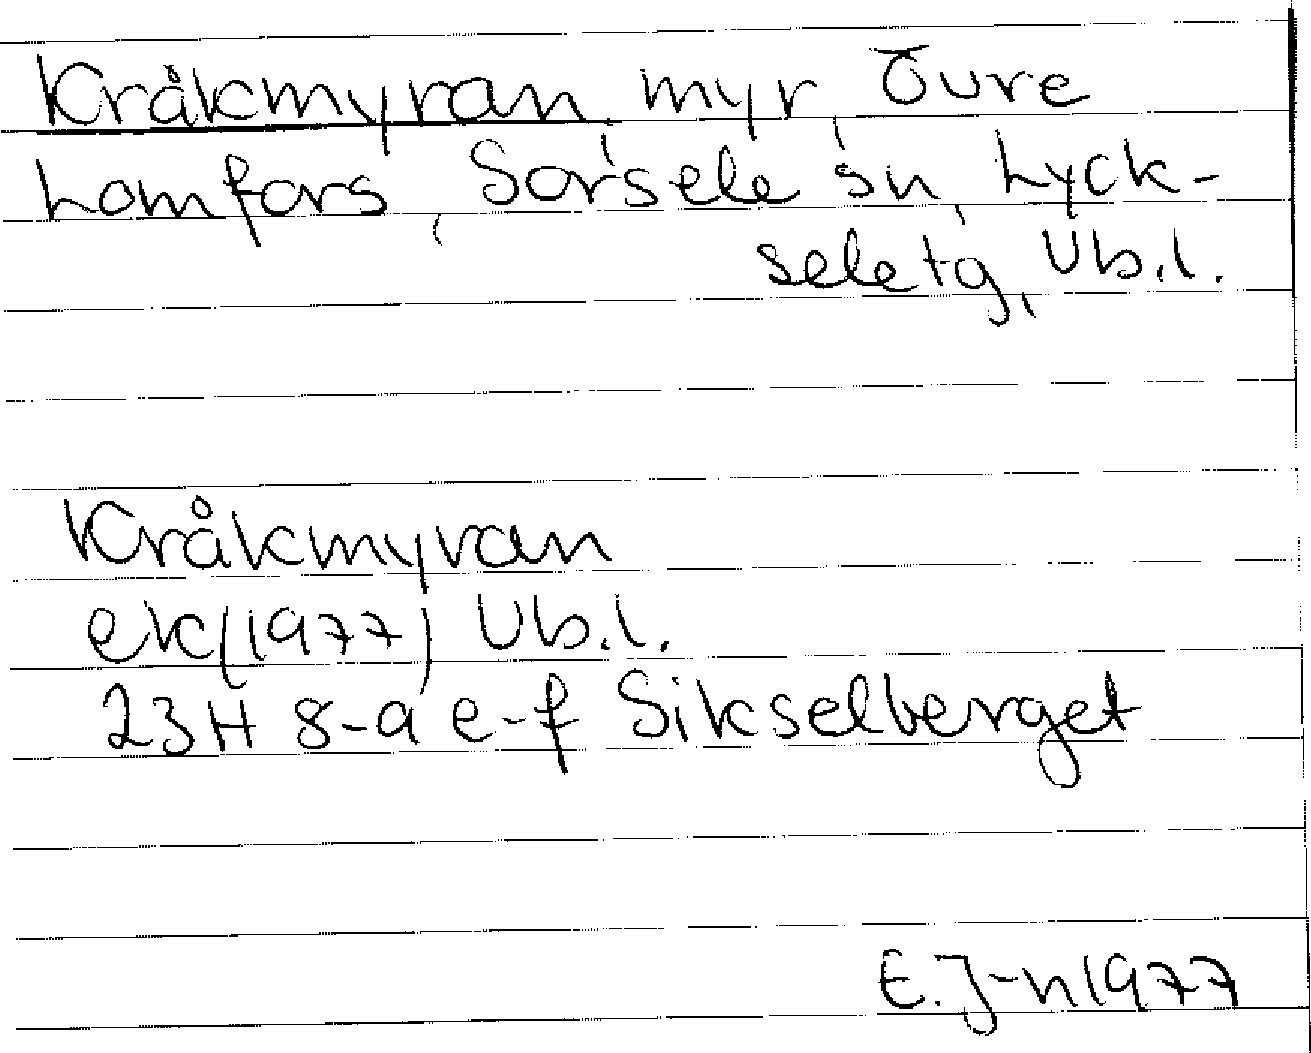 Kråkmyran, myr, Övre
Lomfors, Sorsele sn, Lyck-
sele tg, Vb.l.
Kråkmyran
ek(1977) Vb.l.
23H 8-9 e-f Sikselberget
E.J-n 1977